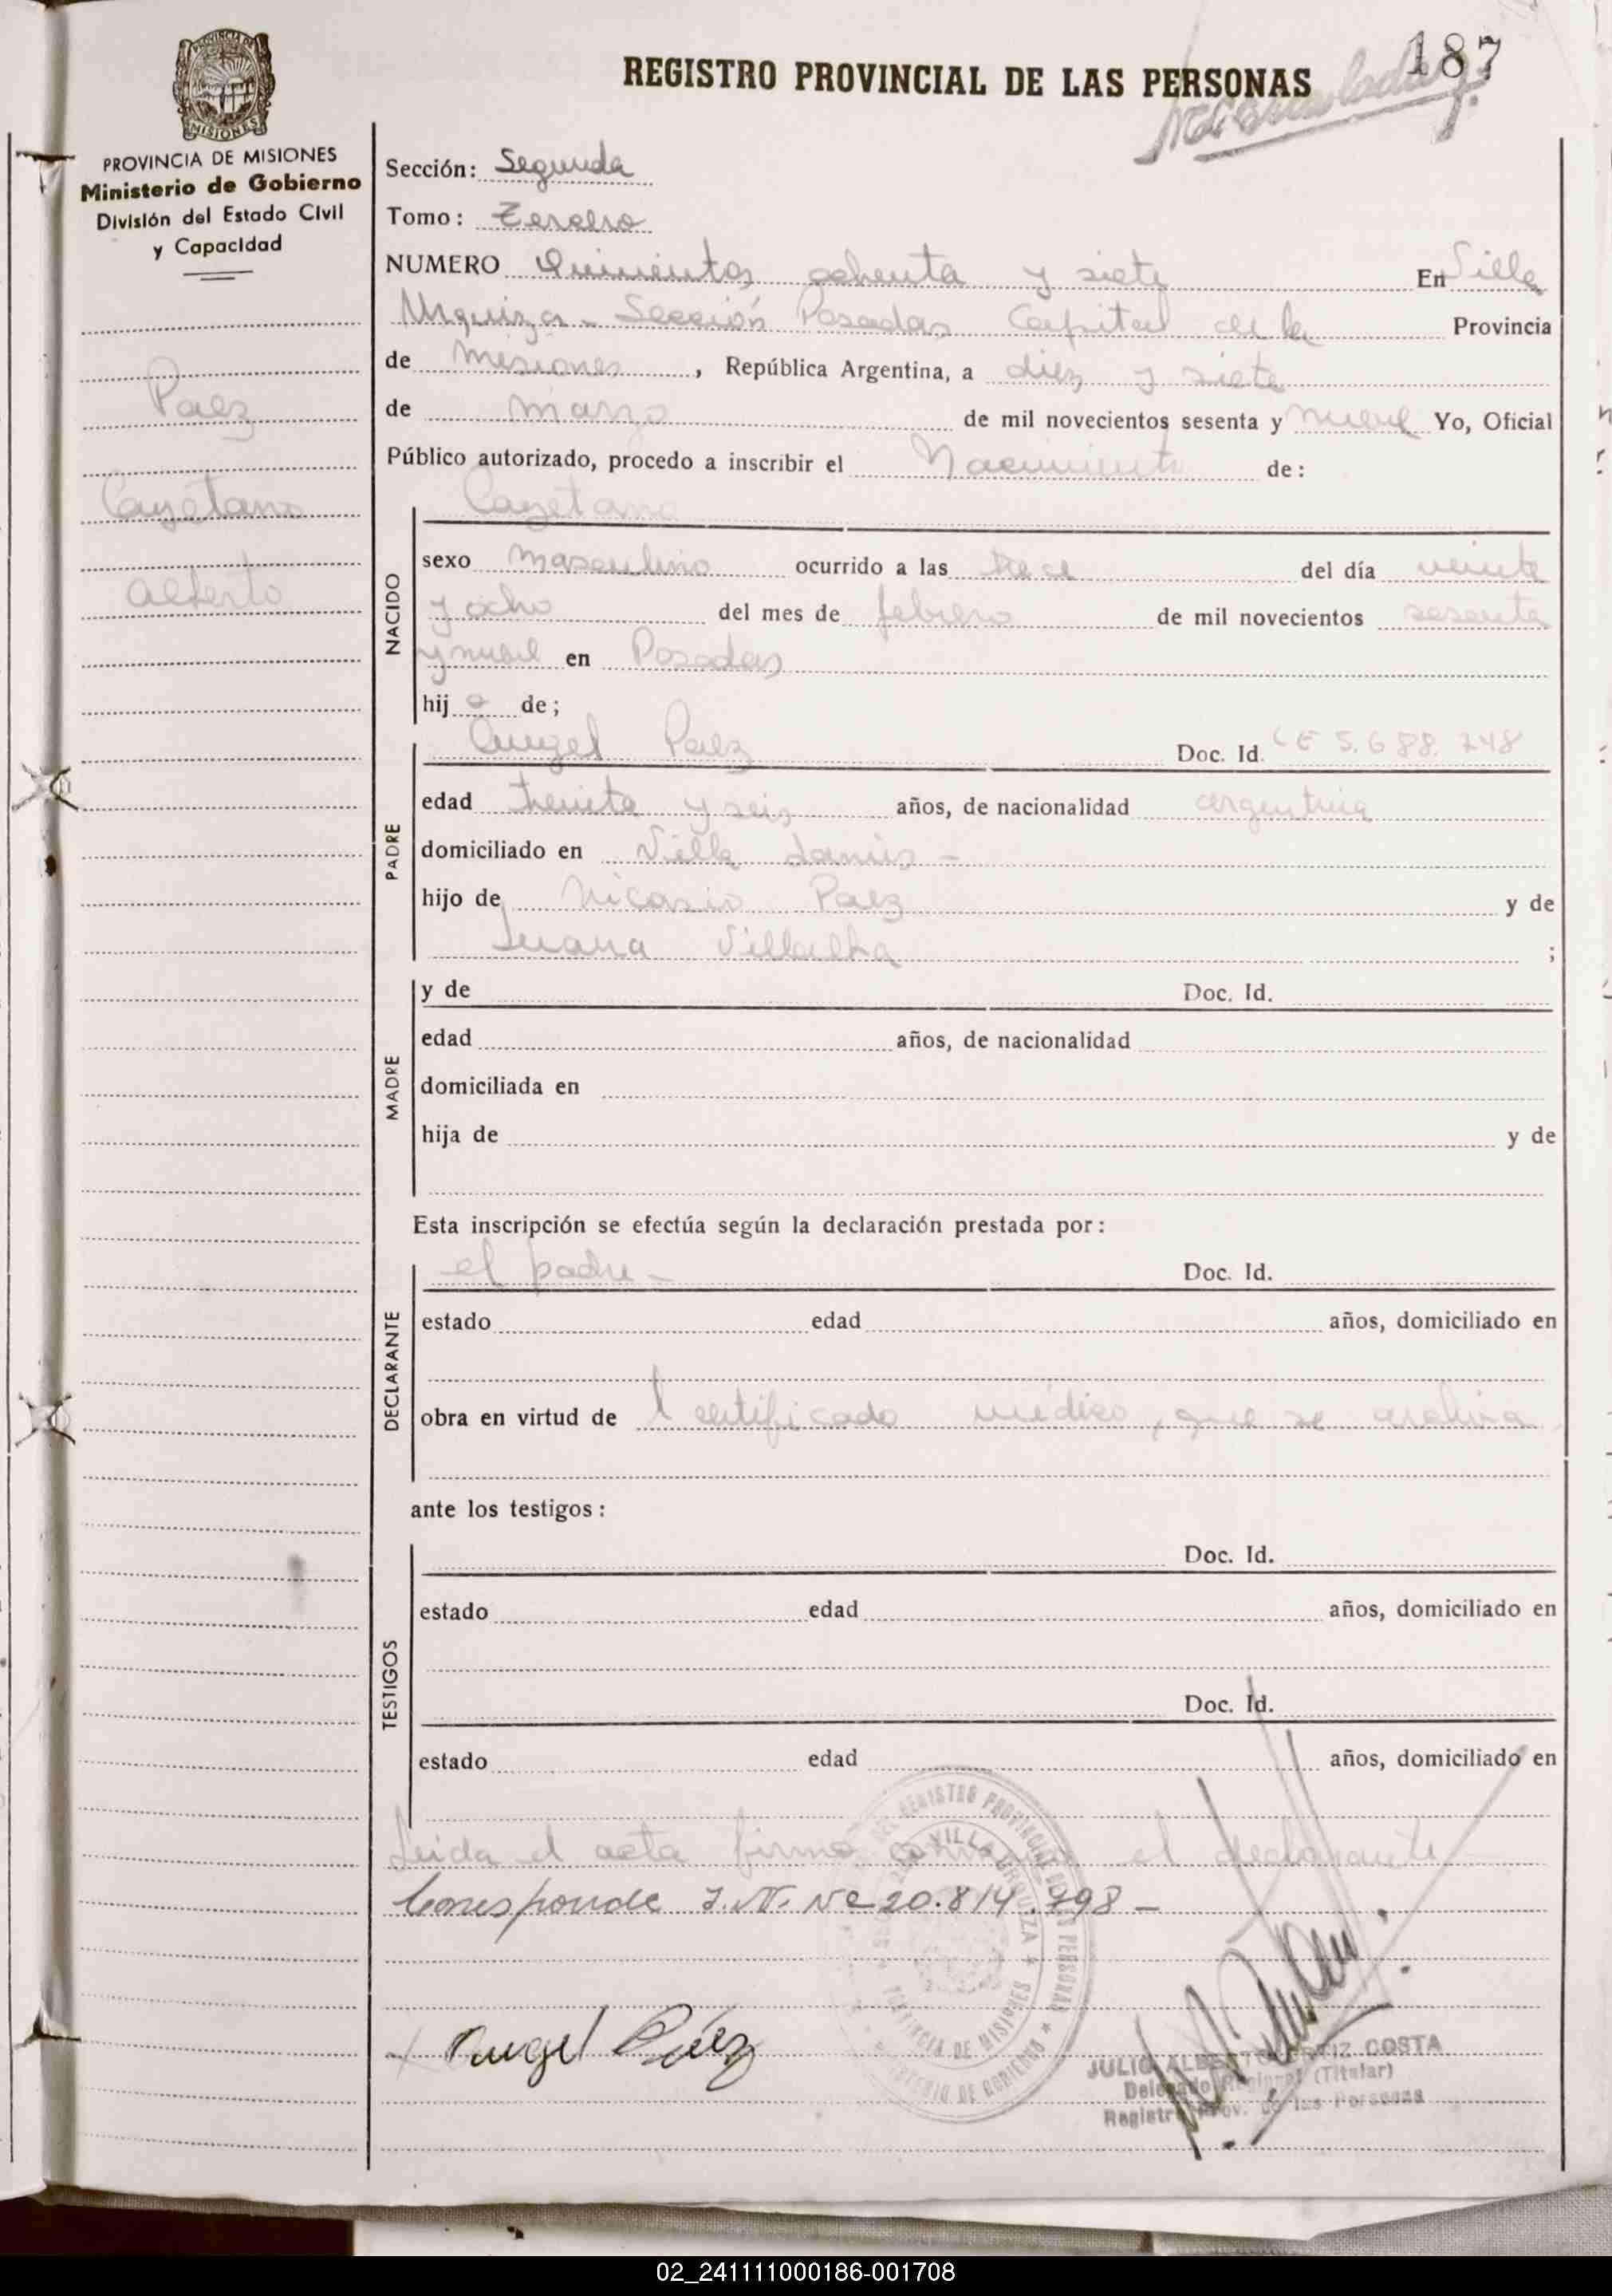 187
REGISTRO PROVINCIAL DE LAS PERSONAS
PROVINCIA DE MISIONES
Ministerio de Gobierno
División del Estado Civil
y Capacidad
Paez
Cayetano
Alberto
Sección: Segunda
Tomo: Tercero
NUMERO Quinientos ochenta y siete En Villa
Urquiza - Sección Posadas Capital de la Provincia
de Misiones, República Argentina, a diez y siete
de marzo de mil novecientos sesenta y nueve Yo, Oficial
Público autorizado, procedo a inscribir el Nacimiento de:
NACIDO
Cayetano
sexo masculino ocurrido a las trece del día veinte
y ocho del mes de febrero de mil novecientos sesenta
y nueve en Posadas
hij o de;
PADRE
Angel Paez Doc. Id. LE 5.688.748
edad treinta y seis años, de nacionalidad argentina
domiciliado en Villa Lanús -
hijo de Nicasio Paez y de
Juana Villalba ;
MADRE
y de Doc. Id.
edad años, de nacionalidad
domiciliada en
hija de y de
Esta inscripción se efectúa según la declaración prestada por:
DECLARANTE
el padre - Doc. Id.
estado edad años, domiciliado en
obra en virtud de certificado médico, que se archiva
ante los testigos:
TESTIGOS
Doc. Id.
estado edad años, domiciliado en
Doc. Id.
estado edad años, domiciliado en
Leida el acta firma el declarante -
Corresponde I.N. Nº 20.814.798 -
Angel Páez
JULIO ALBERTO ORTIZ COSTA
Delegado Regional (Titular)
Registro Prov. de las Personas
02_241111000186-001708